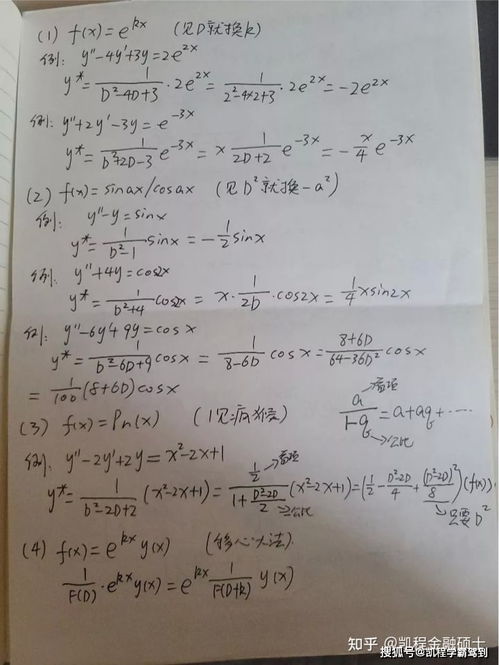 (1) f(x)=e^{kx} (见D就换k)
例: y''-4y'+3y=2e^{2x}
y*=\frac{1}{D²-4D+3}·2e^{2x}=\frac{1}{2²-4×2+3}·2e^{2x}=-2e^{2x}
例: y''+2y'-3y=e^{-3x}
y*=\frac{1}{D²+2D-3}e^{-3x}=x\frac{1}{2D+2}e^{-3x}=-\frac{x}{4}e^{-3x}
(2) f(x)=sinax/cosax (见D²就换-a²)
例: y''-y=sinx
y*=\frac{1}{D²-1}sinx=-\frac{1}{2}sinx
例: y''+4y=cos2x
y*=\frac{1}{D²+4}cos2x=x·\frac{1}{2D}·cos2x=\frac{1}{4}xsin2x
例: y''-6y'+9y=cosx
y*=\frac{1}{D²-6D+9}cosx=\frac{1}{8-6D}cosx=\frac{8+6D}{64-36D²}cosx
=\frac{1}{100}(8+6D)cosx
首项
\frac{a}{1-q}=a+aq+····
公比
(3) f(x)=Pn(x)
例: y''-2y'+2y=x²-2x+1
首项
y*=\frac{1}{D²-2D+2}(x²-2x+1)=\frac{\frac{1}{2}}{1+\frac{D²-2D}{2}}(x²-2x+1)=(\frac{1}{2}-\frac{D²-2D}{4}+\frac{(D²-2D)²}{8})(f(x))
公比
只要D²
(4) f(x)=e^{kx}y(x) (移心大法)
\frac{1}{F(D)}·e^{kx}y(x)=e^{kx}\frac{1}{F(D+k)}y(x)
知乎 @凯程金融硕士
搜狐号@凯程学霸驾到